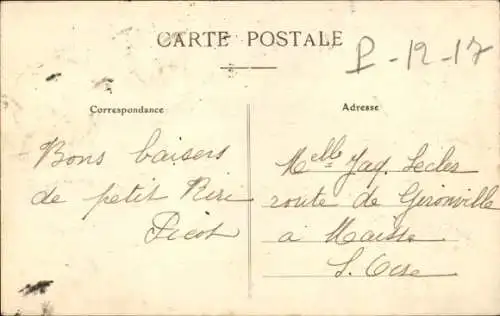 CARTE POSTALE
P-12-17
Correspondance
Adresse
Bons baisers
de petit Riri
Picot
Melle Jaq. Lecler
route de Gironville
à Maisse
S. Oise